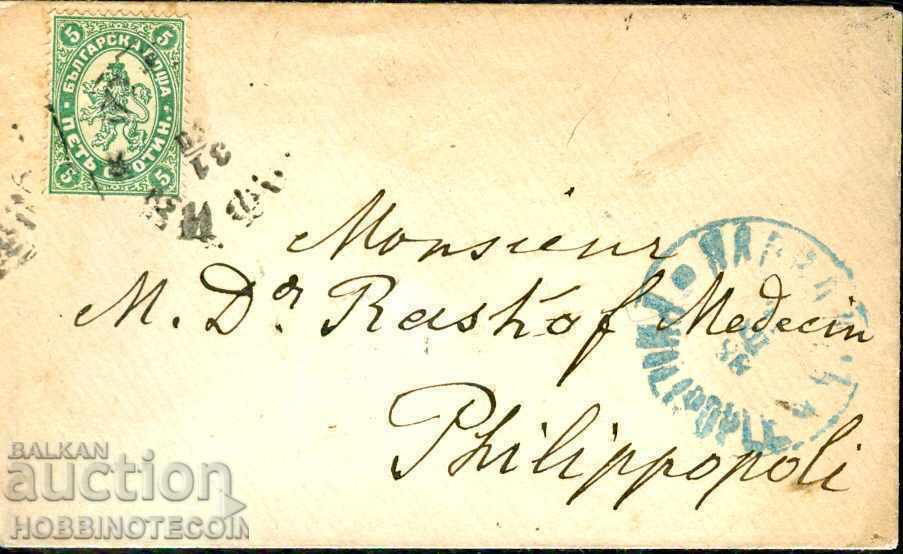 5 5
БЪЛГАРСКА ПОЩА
ПЕТЬ СТОТИН.
5 5
31
Monsieur
M. Dr. Raskof Medecin
Philippopoli
BALKAN
auction
HOBBINOTECOIN